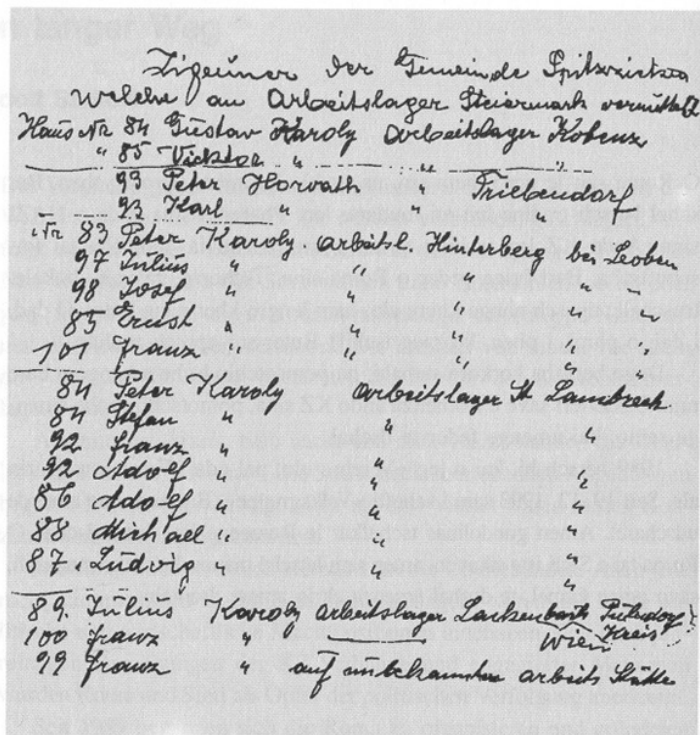 Zigeuner der Gemeinde Spitzzicken
welche am Arbeitslager Steiermark vermittelt
Haus Nr 84 Gustav Karoly Arbeitslager Kobenz
" 85 Vicktor " " "
93 Peter Horvath " Triebendorf
93 Karl " " "
Nr. 83 Peter Karoly Arbeitsl. Hinterberg bei Leoben
97 Julius " " " " "
98 Josef " " " " "
85 Ernst " " " " "
101 Franz " " " " "
84 Peter Karoly Arbeitslager St. Lambrech
84 Stefan " " "
92 Franz " " "
92 Adolf " " "
86 Adolf " " "
88 Michael " " "
87 Ludwig " " "
89 Julius Karoly Arbeitslager Lackenbach Pulendorf
100 Franz " Wien Kreis
99 Franz " auf unbekannter Arbeits Stätte